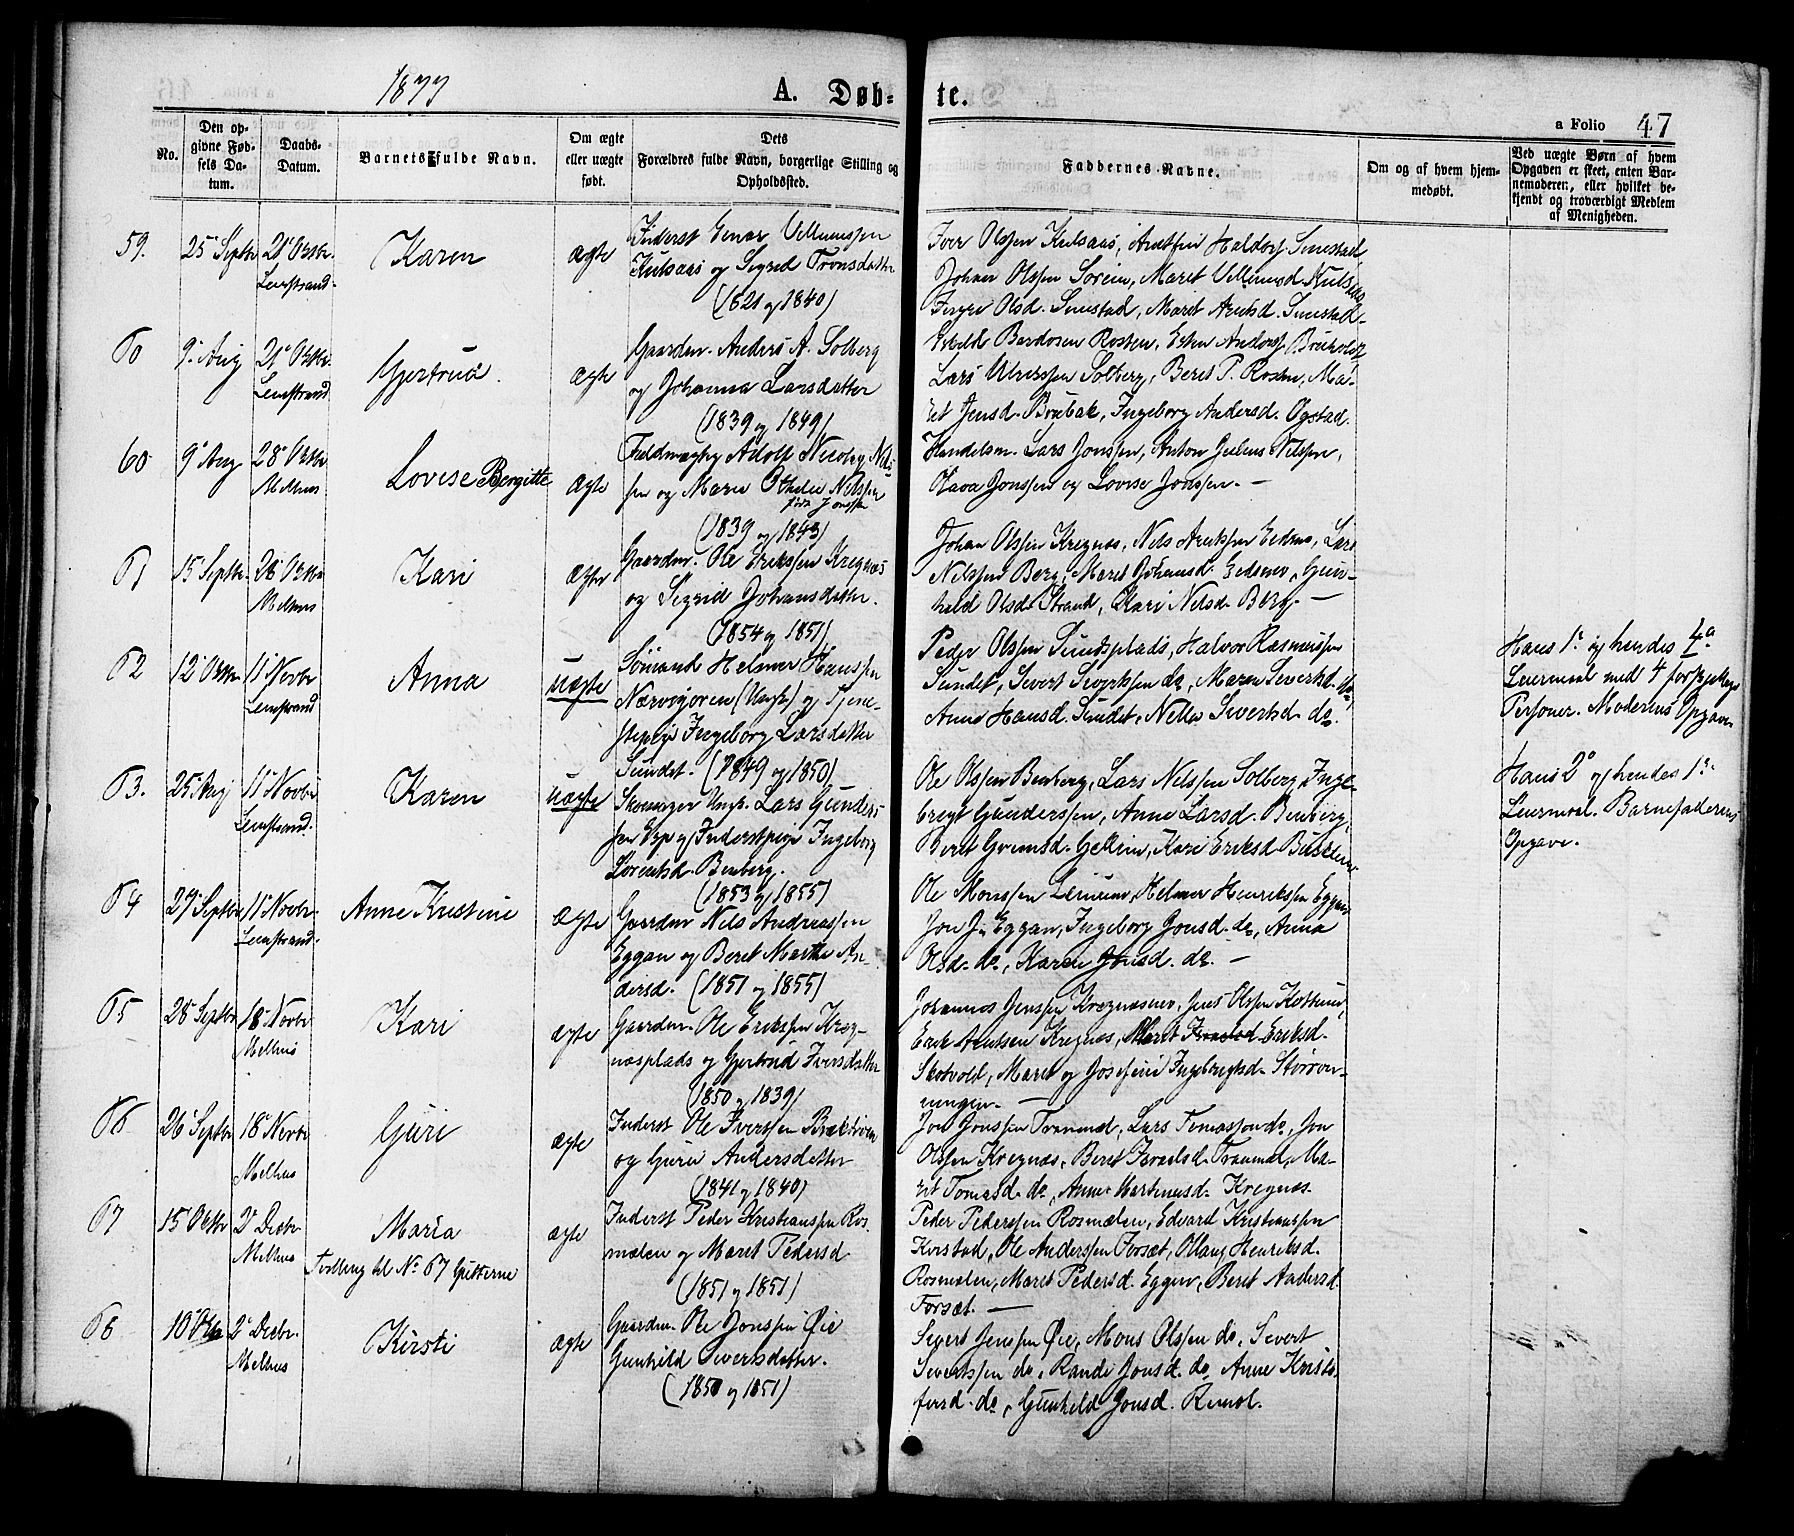 1877
A. Døb-
te.
a Folio 47
No.
Den op-
givne Fød-
sels Da-
tum.
Daabs-
Datum.
Barnets fulde Navn.
Om ægte
eller uægte
født.
Dets
Forældres fulde Navn, borgerlige Stilling og
Opholdssted.
Faddernes Navne.
Om og af hvem hjem-
medøbt.
Ved uægte Børn af hvem
Opgaven er skeet, enten Bar-
nemoderen, eller hvilket be-
kjendt og troværdigt Medlem
af Menigheden.
59.
25 Septbr
21 Octbr.
Lenstrand.
Karen
ægte
Inderst Einar Vellumsen
Kulsaas og Sigrid Tronsdatter
(1821 og 1840)
Iver Olssen Kulsaas, Arntfin Haldors. Smestad,
Johan Olssen Soreim, Maret Vellumsd. Kulsaas
Ingri Olsd. Smestad, Maret Arntsd. Smestad.
60
9 Aug
21 Octbr.
Lenstrand
Gjertrud.
ægte
Gaardm. Anders A. Solberg
og Johanna Larsdatter
(1839 og 1849)
Bardosen Rosten, Esten Anders. Brubakk
Lars Ulrikssen Solberg, Beret P. Rosten, Ma-
ret Jensd. Brubak, Ingeborg Andersd. Ogstad.
60
9 Aug
28 Octbr
Melhus
Lovise Bergitte
ægte
Fuldmægtig Adolf Nicolay Nils-
sen og Marie Othelie Nilssen
født Jonssen
(1839 og 1843)
Handelsm. Lars Jonssen, Anton Julius Nilssen,
Hava Jonssen og Lovise Jonssen. —
61
15 Septbr.
28 Octbr
Melhus
Kari
ægte
Gaardm. Ole Erikssen Kregnæs
og Sigrid Johansdatter.
(1854 og 1851)
Johan Olssen Kregnæs, Nils Arntssen Eidsmo, Lars
Nilssen Berg, Maret Johansd. Eidsmo, Gun-
hild Olsd. Strand, Kari Nilsd. Berg. —
62
12 Octbr
11 Novbr
Lenstrand
Anna
uægte
Sømand Helmer Hanssen
Nærvigoren (Ungk.) og Tjene-
stepige Ingeborg Larsdatter
Sundet. (1849 og 1850)
Peder Olssen Sundsplads, Halvor Rasmussen
Sundet, Sivert Sivertssen do, Maren Sivertsd. do
Anne Hansd. Sundet, Nella Sivertsd. do.
Hans 1ste og hendes 4de
Leiermaal med 4 forskjellige
Personer. Moderens Opgave
63.
25 Aug
11 Novbr
Lenstrand.
Karen
uægte
Skomager Ungk. Lars Gunders-
sen Esp og Inderstpige Ingeborg
Lorentsd. Benberg.
(1853 og 1855)
Ole Olssen Benberg, Lars Nilssen Solberg, Inge-
brigt Gunderssen, Anne Larsd. Benberg,
Beret Kari Eriksd.
Hans 2d og hendes 1ste
Leiermaal. Barnefaderens
Opgave.
64
29 Septbr
11 Novbr.
Lenstrand.
Anne Kristine
ægte
Gaardm. Nils Andreassen
Eggan og Beret Marta An-
dersd. (1851 og 1855)
Ole Monssen Helmer Henrikssen Eggan
Jon J. Eggan, Ingeborg Jonsd. do, Anna
Olsd. do, Karen Jonsd. do. —
65
28 Septbr
18 Novbr
Melhus
Kari
ægte
Gaardm. Ole Erikssen Kreg-
næsplads og Gjertrud Iversdatter
(1850 og 1839)
Johannes Jenssen Kregnæsmo, Jens Olssen
Erik Arntsen Kregnæs, Maret Eriksd.
Skotvold, Maret og Josefine Ingebrigtsd.
66
26 Septbr
18 Novbr
Melhus
Guri
ægte
Inderst Ole Iverssen
og Guru Andersdatter
(1841 og 1840)
Jon Jonssen Tranmel, Lars Tomassen do, Jon
Olssen Kregnæs, Beret Israelsd. Tranmel, Ma-
ret Tomasd. do, Anne Martinusd. Kregnæs.
67
15 Octbr
2 Decbr
Melhus
Maria
Tvilling til No. 67 Gutterne
ægte
Inderst Peder Kristianssen Ros-
mælen og Maret Pedersd
(1851 og 1851)
Peder Pederssen Rosmælen, Edvard Kristianssen
Kvistad, Ole Anderssen Forsæt, Ollaug Henriksd.
Rosmælen, Maret Pedersd. Eggen, Beret Andersd
Forsæt. —
68
10 Octbr
2 Decbr.
Melhus
Kirsti
ægte
Gaardm. Ole Jonssen Øie
Gunhild Sivertsdatter.
(1850 og 1851)
Sivert Jenssen Øie, Mons Olssen do, Sivert
Sivertssen do, Randi Jonsd. do, Anne Kristo-
fersd. do, Gunhild Jonsd. Rimol.